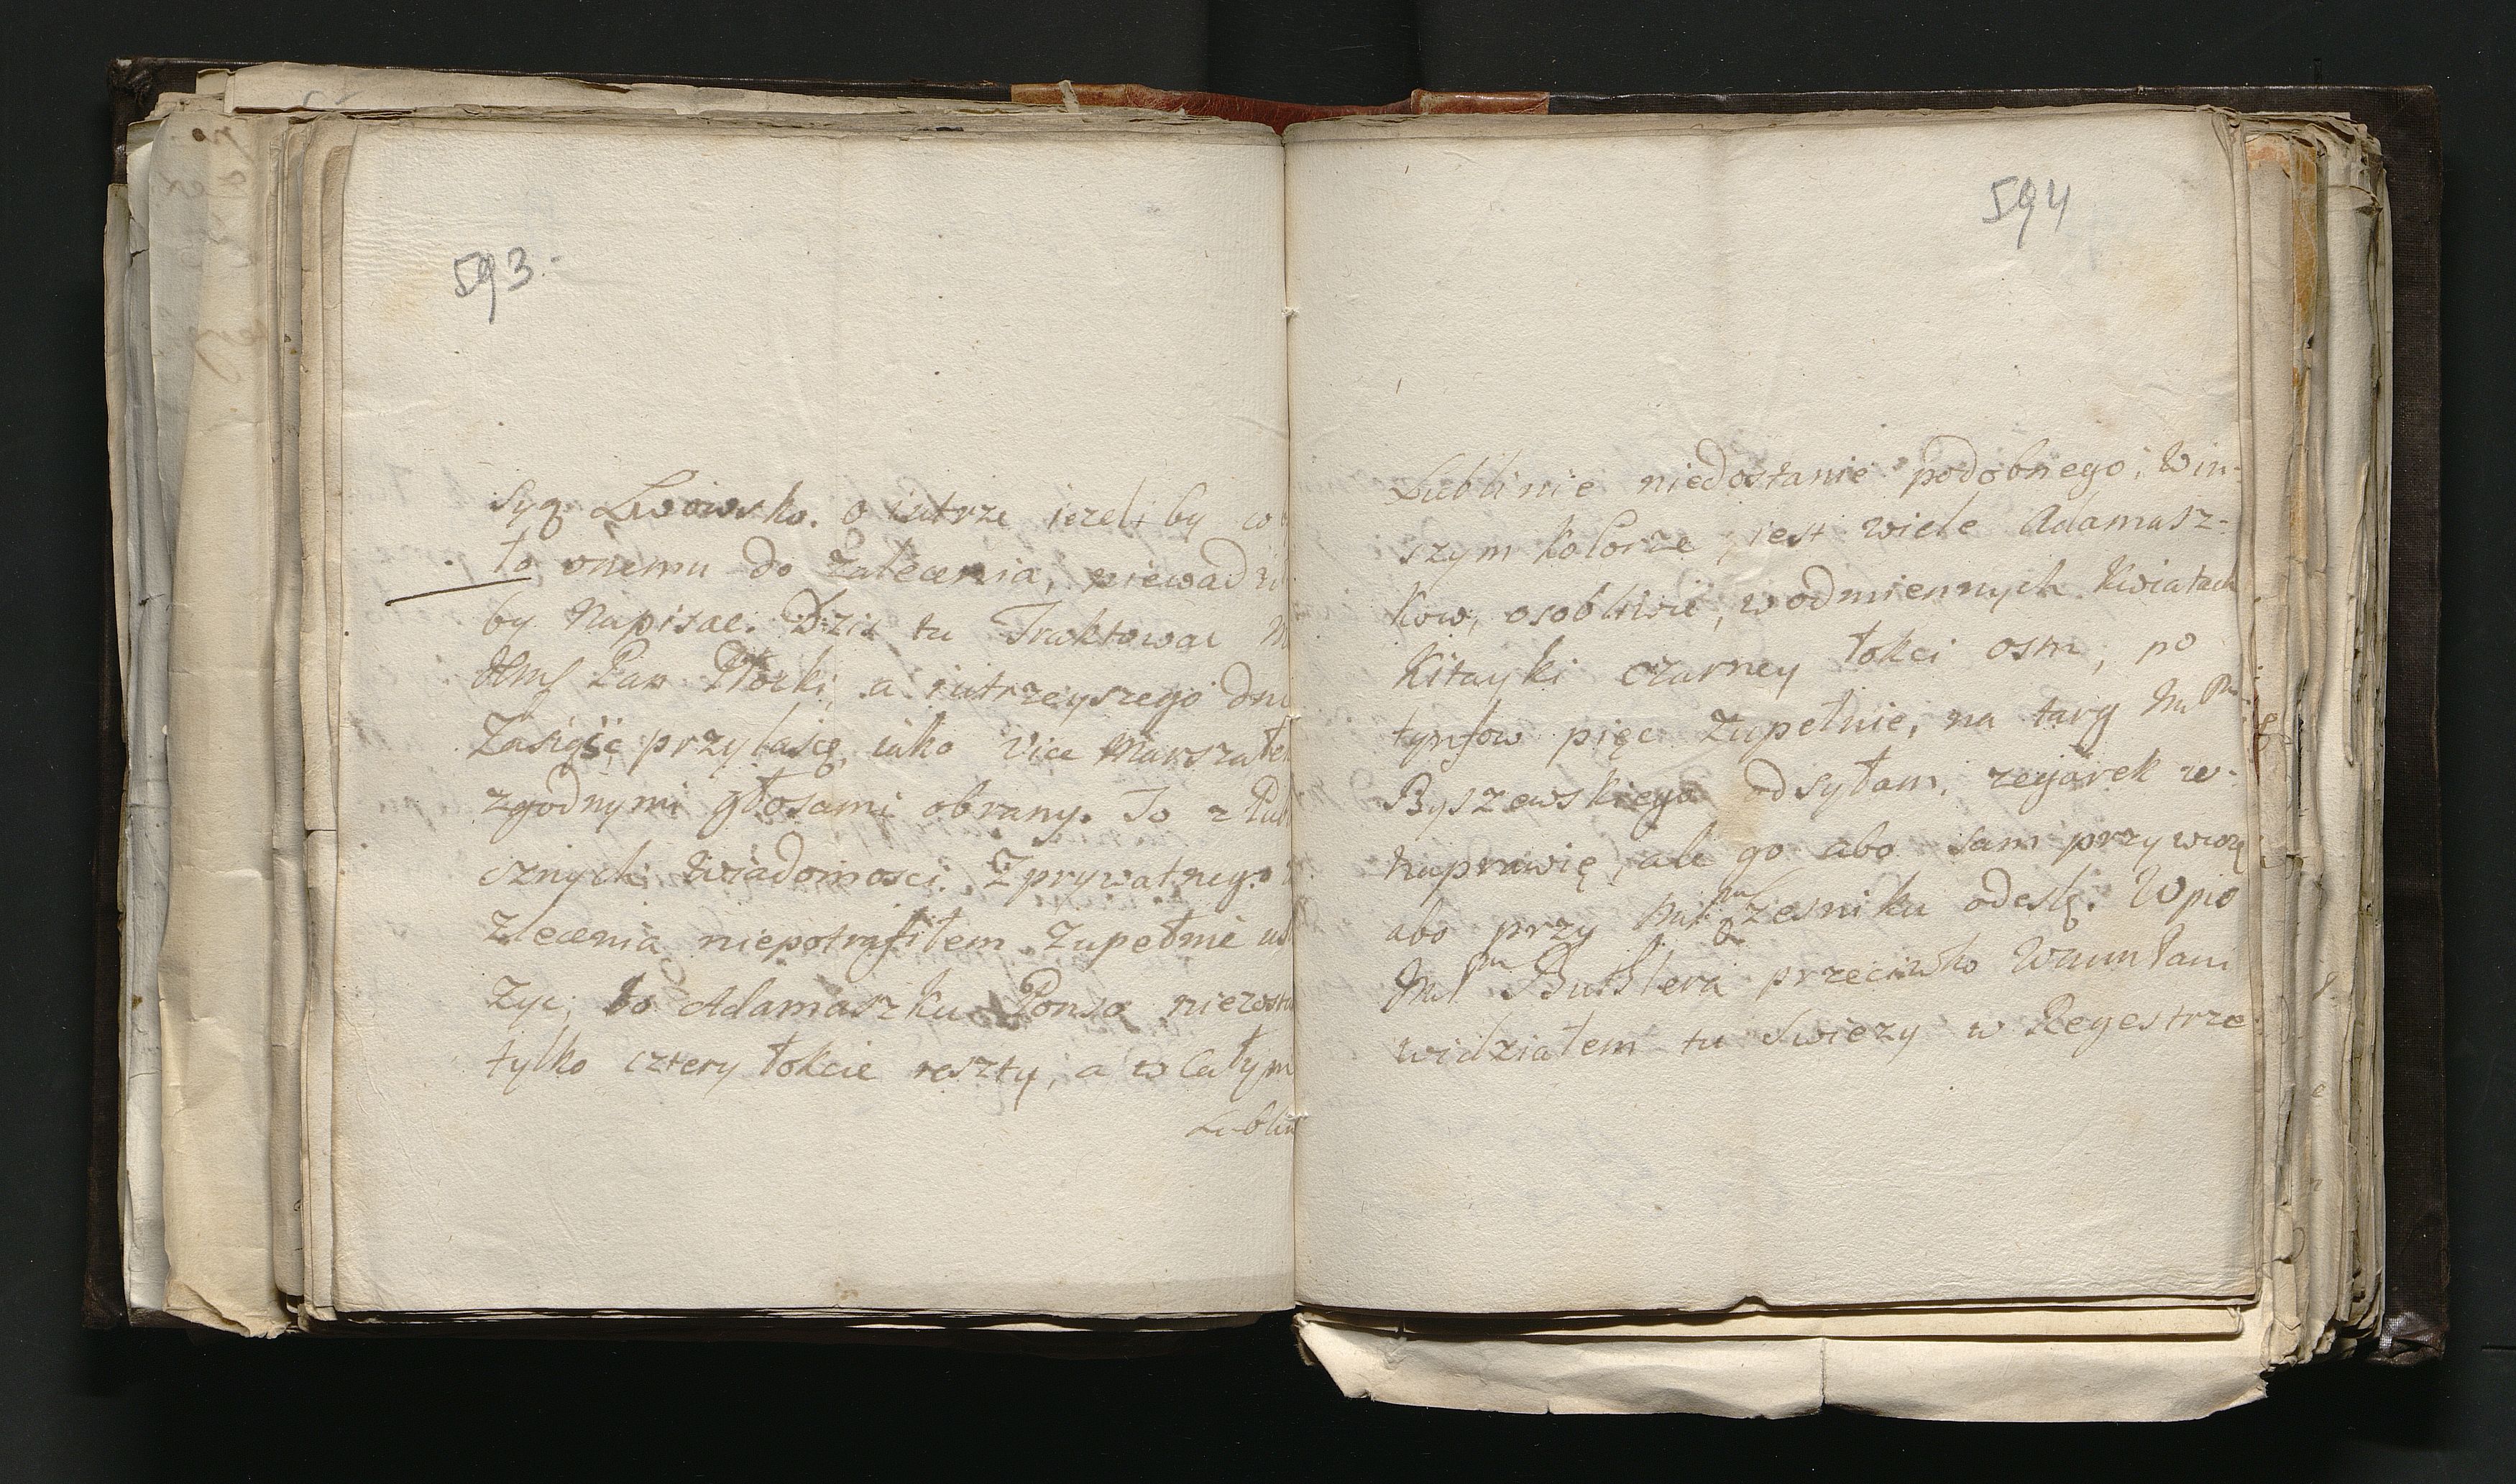 593.
syą Lwowsko. o iutrze iezeli by co
to onemu do zalecenia, niewadzi
by Napisac. Dzis tu Traktował
Pan a iutrzeyszego dni
Zasięśc przylasię, iako Vice Marszałek
zgodnymi głosami obrany. To z Pub
cznych wiadomosci. Z prywatnego
Zlecenia niepotrafiłem Zupełnie
Zyc; bo Adamaszku Ponso niezosta
tylko cztery łokcie reszty, a w Całym
Lublin
594
Lublinie niedostanie podobnego, w in-
szym Kolorze, iest wiele Adamasz-
kow, osobliwie, w odmiennych Kwiatach
Kitayki czarney łokci osm, po
tynfow pięc Zupełnie, na targ
Byszewskiego odsyłam, zegarek w-
naprawię, ale go abo sam przywiozę
abo przy odeslę. Wpis
Buttlera przeciwko
widziałem tu swiezy w Regestrze